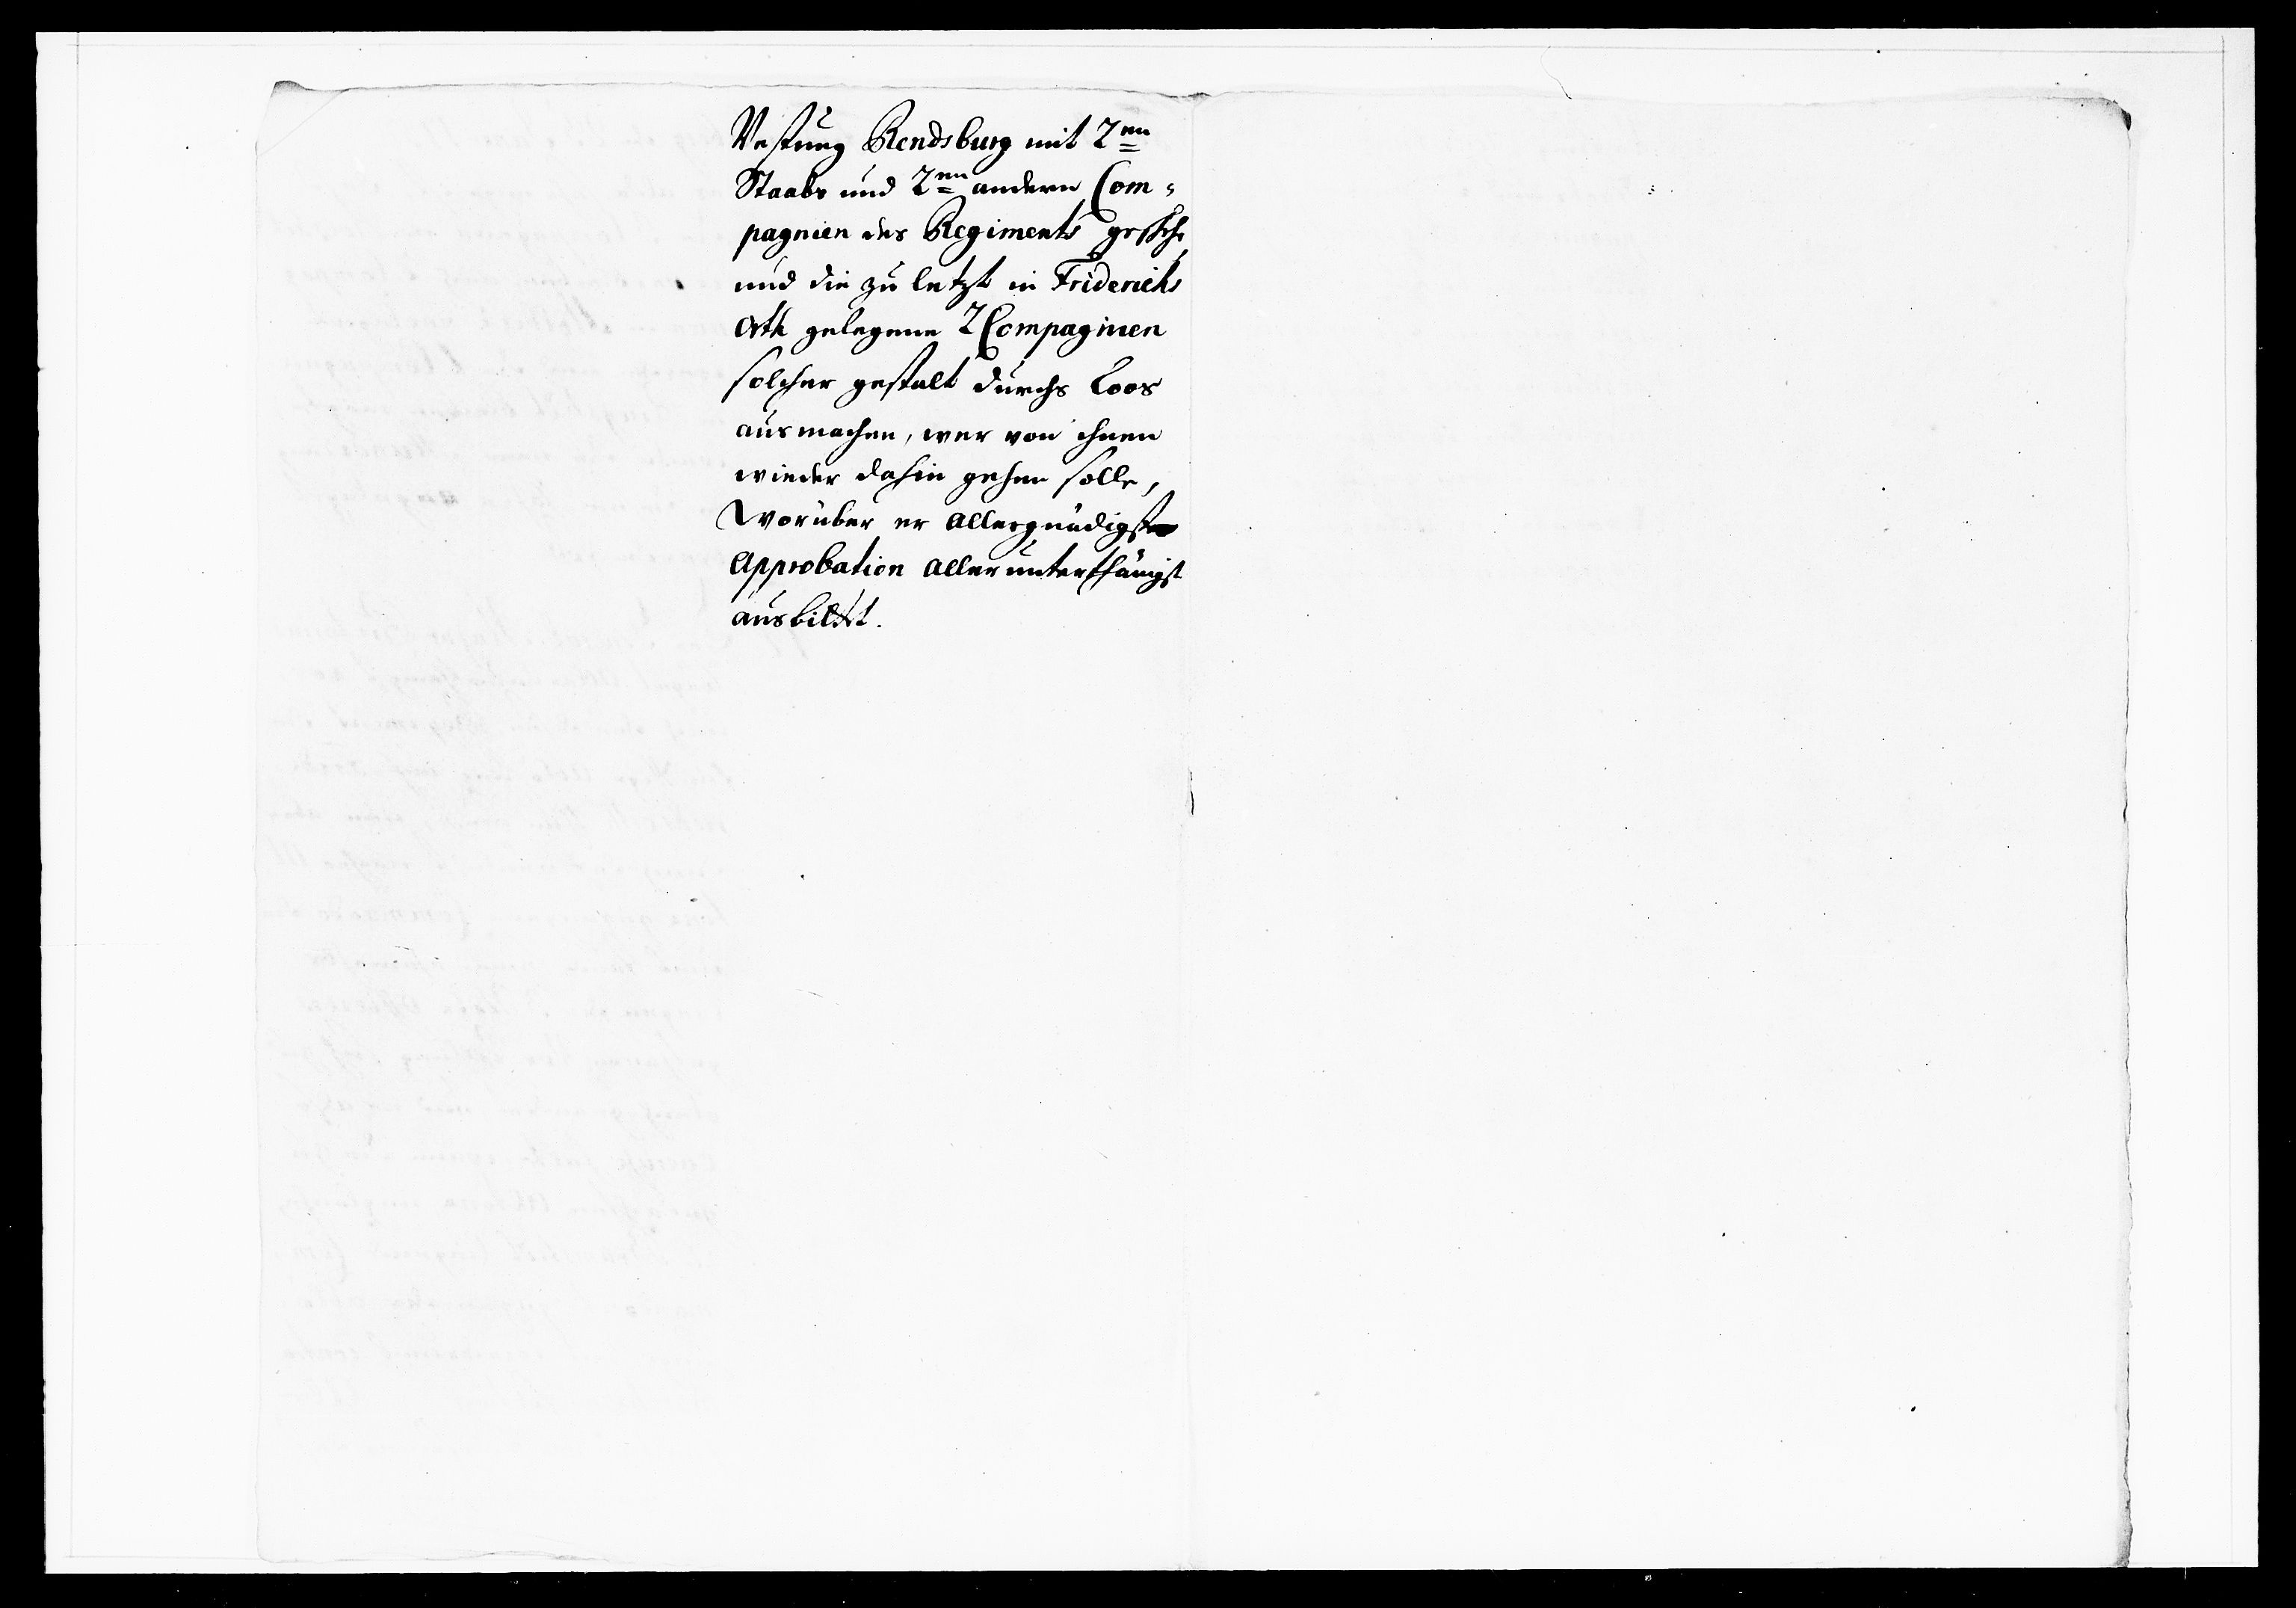 Vestung Rendsburg mit 2en
Staabs und 2en andern Com-
pagnien des Regiments gesche,
und die zu letzt in Friderichs
Orth gelegene 2 Compagnien
solcher gestalt durchs Loos
ausmachen, wer von ihnen
wieder dahin gehen solle,
Worüber er Allergnädigste
Approbation allerunterthänigst
ausbittet.